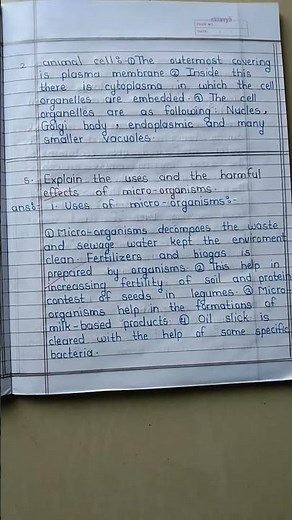 2. animal cell:- ① The outermost covering
is plasma membrane ② Inside this
there is cytoplasma in which the cell
organelles are embedded ③ The cell
organelles are as following: Nucles,
Golgi body, endoplasmic and many
smaller vacuoles.
5. Explain the uses and the harmful
effects of micro-organisms.
ans:- 1. Uses of micro-organisms:-
① Micro-organisms decompoes the waste
and sewage water kept the enviroment
clean. Fertilizers and biogas is
prepared by organisms ② This help in
increassing fertility of soil and protein
contest of seeds in legumes ③ Micro
organisms help in the formations of
milk-based products. ④ Oil slick is
cleared with the help of some specific
bacteria.